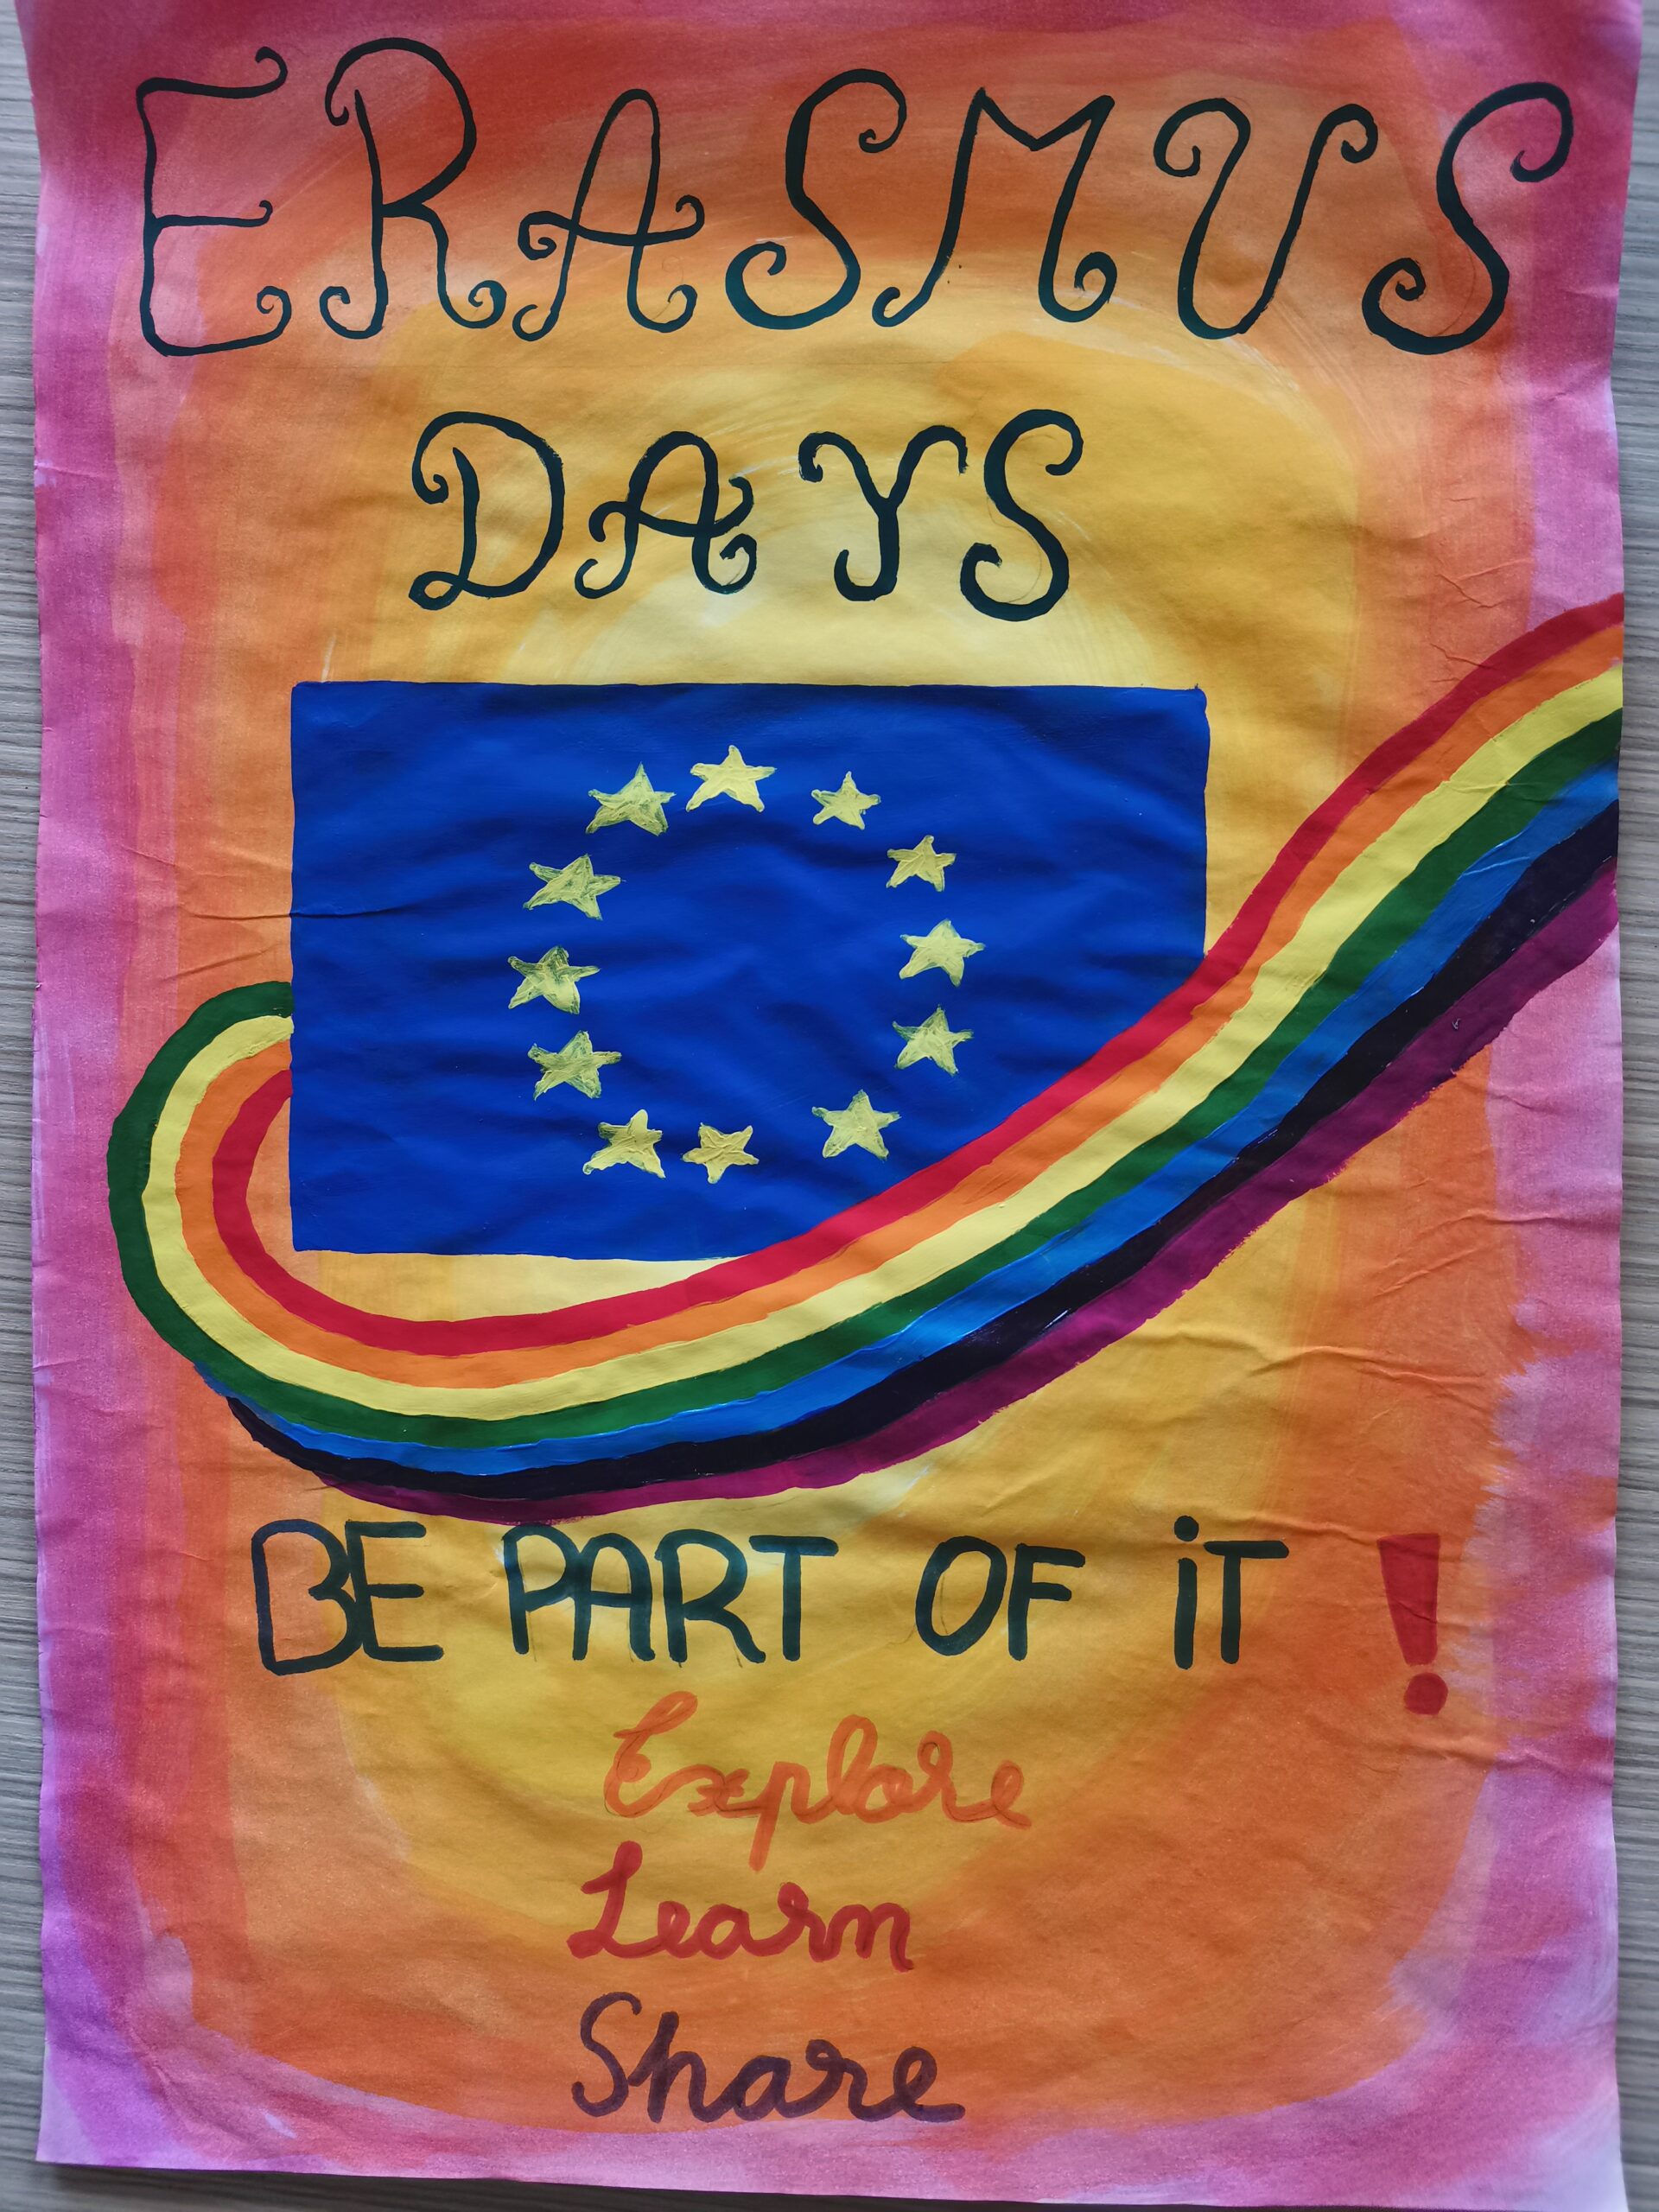 ERASMUS
DAYS
BE PART OF iT !
Explore
Learn
Share